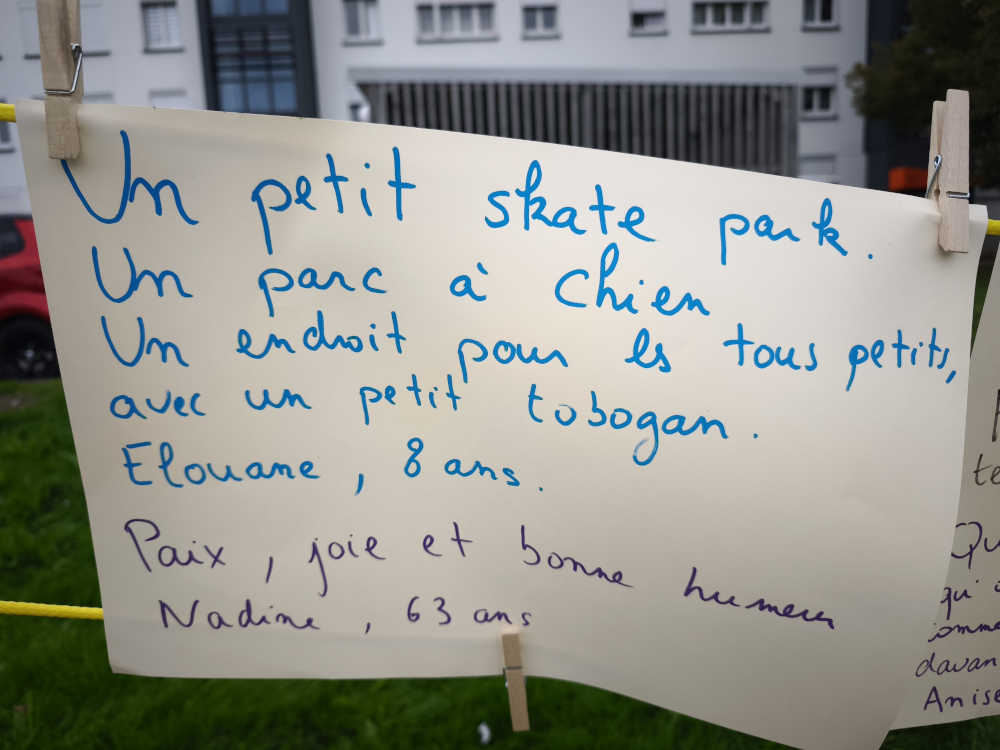 Un petit skate park.
Un parc à chien
Un endroit pour les tous petits,
avec un petit tobogan.
Elouane, 8 ans.
Paix, joie et bonne humeur
Nadine, 63 ans
te
Qu
qui
comme
davan
Anise